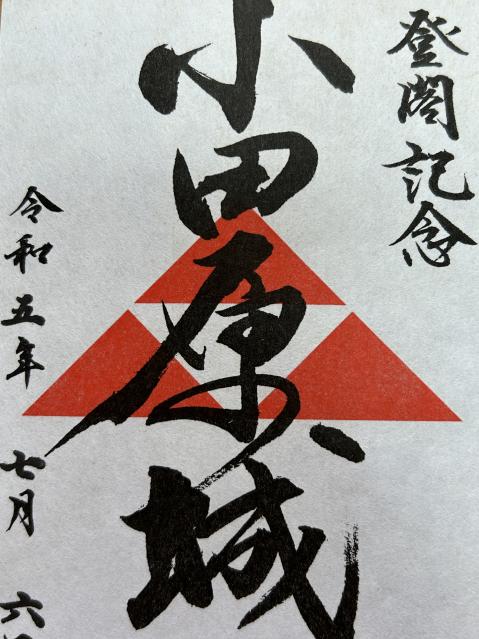 登閣記念
小田原城
令和五年 七月 六